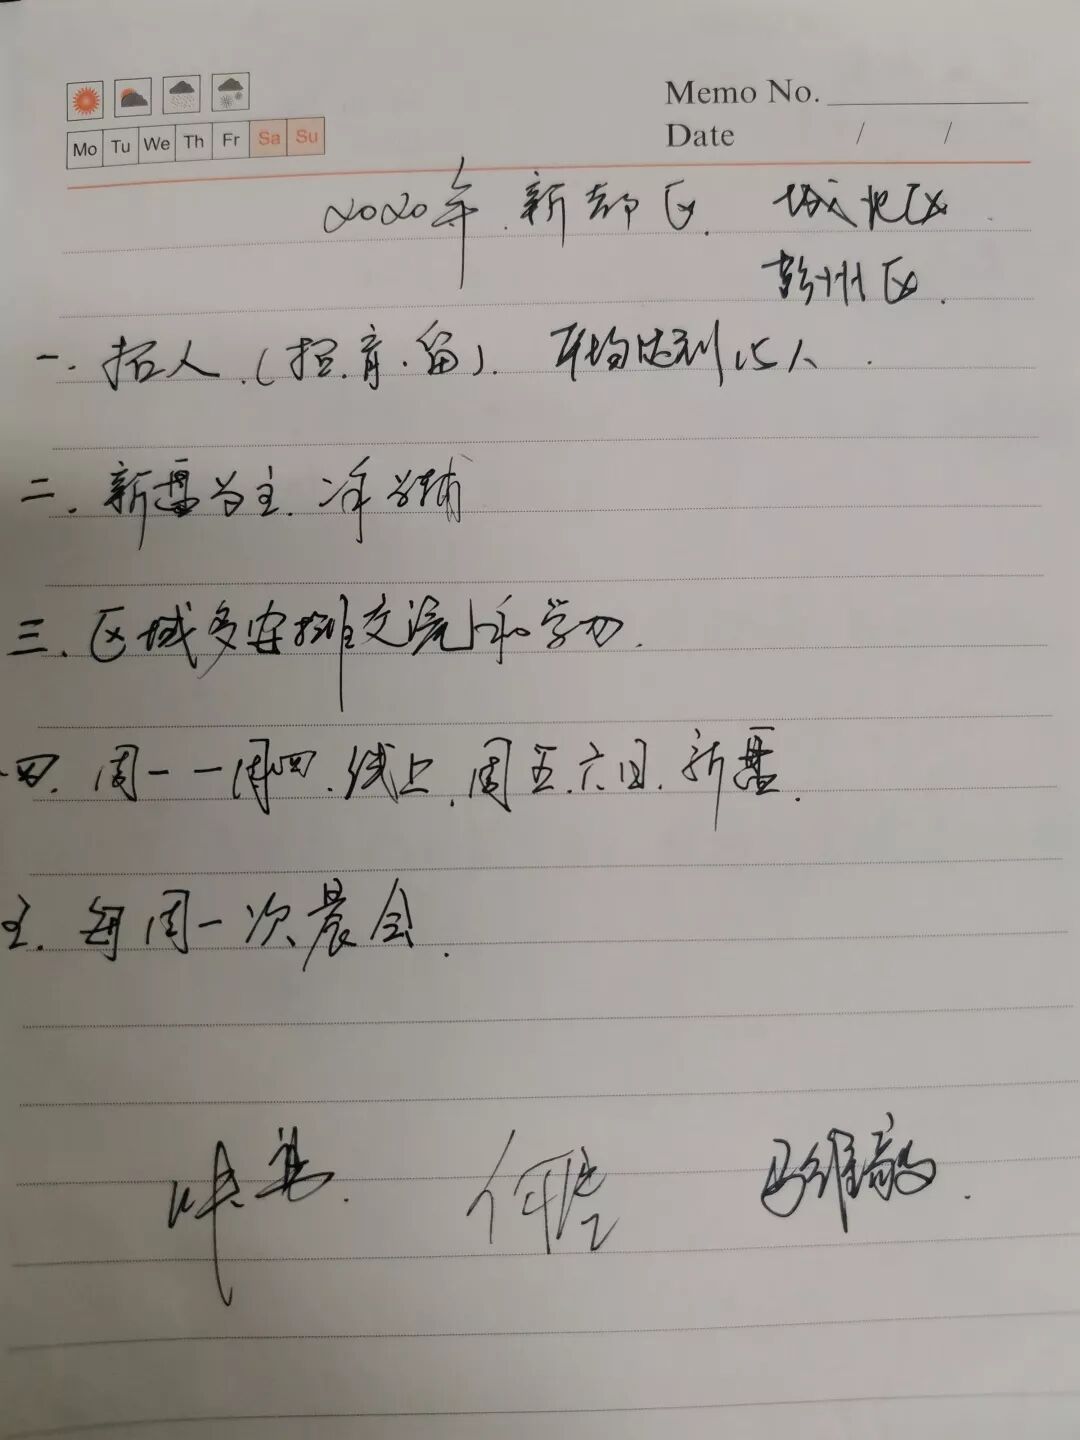 Memo No.
Mo Tu We Th Fr Sa Su
Date / /
2020年.新都区. 城北区
彭州区.
一.招人.(招.育.留). 平均达到15人.
二.新盘为主.
三.区域多安排交流和学习.
四.周一一周四.线上.周五.六.日.新盘.
五.每周一次晨会.